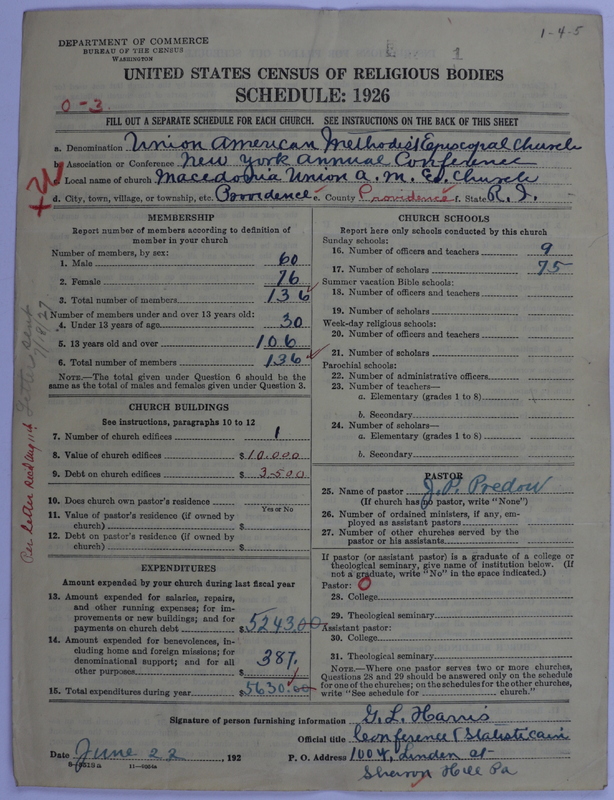 1-4-5
1
DEPARTMENT OF COMMERCE
BUREAU OF THE CENSUS
WASHINGTON
UNITED STATES CENSUS OF RELIGIOUS BODIES
SCHEDULE: 1926
0-3
FILL OUT A SEPARATE SCHEDULE FOR EACH CHURCH. SEE INSTRUCTIONS ON THE BACK OF THIS SHEET
a. Denomination Union American Methodist Episcopal Church
b. Association or Conference New York Annual Conference
c. Local name of church Macedonia Union A. M. Ep. Church
d. City, town, village, or township, etc. Providence e. County Providence f. State R. I.
MEMBERSHIP
Report number of members according to definition of member in your church
Number of members, by sex:
1. Male 60
2. Female 76
3. Total number of members 136
Number of members under and over 13 years old:
4. Under 13 years of age 30
5. 13 years old and over 106
6. Total number of members 136
NOTE.—The total given under Question 6 should be the
same as the total of males and females given under Question 3.
CHURCH BUILDINGS
See instructions, paragraphs 10 to 12
7. Number of church edifices 1
8. Value of church edifices $ 10.000
9. Debt on church edifices $ 3-500
10. Does church own pastor's residence
Yes or No
11. Value of pastor's residence (if owned by
church) $
12. Debt on pastor's residence (if owned by
church) $
EXPENDITURES
Amount expended by your church during last fiscal year
13. Amount expended for salaries, repairs,
and other running expenses; for im-
provements or new buildings; and for
payments on church debt $ 5243.00
14. Amount expended for benevolences, in-
cluding home and foreign missions; for
denominational support; and for all
other purposes $ 387.
15. Total expenditures during year $ 5630.00
CHURCH SCHOOLS
Report here only schools conducted by this church
Sunday schools:
16. Number of officers and teachers 9
17. Number of scholars 75
Summer vacation Bible schools:
18. Number of officers and teachers
19. Number of scholars
Week-day religious schools:
20. Number of officers and teachers
21. Number of scholars
Parochial schools:
22. Number of administrative officers
23. Number of teachers—
a. Elementary (grades 1 to 8)
b. Secondary
24. Number of scholars—
a. Elementary (grades 1 to 8)
b. Secondary
PASTOR
25. Name of pastor J. P. Predow
(If church has no pastor, write "None")
26. Number of ordained ministers, if any, em-
ployed as assistant pastors
27. Number of other churches served by the
pastor or his assistants
If pastor (or assistant pastor) is a graduate of a college or
theological seminary, give name of institution below. (If
not a graduate, write "No" in the space indicated.)
Pastor: 0
28. College
29. Theological seminary
Assistant pastor:
30. College
31. Theological seminary
NOTE.—Where one pastor serves two or more churches,
Questions 28 and 29 should be answered only on the schedule
for one of the churches; on the schedules for the other churches,
write "See schedule for church."
Signature of person furnishing information G. L. Harris
Official title Conference Statisticain
Date June 22, 192
P. O. Address 1004, Linden at-
Sharon Hill Pa
Letter sent 7/18/27
Per letter recd Aug 11th